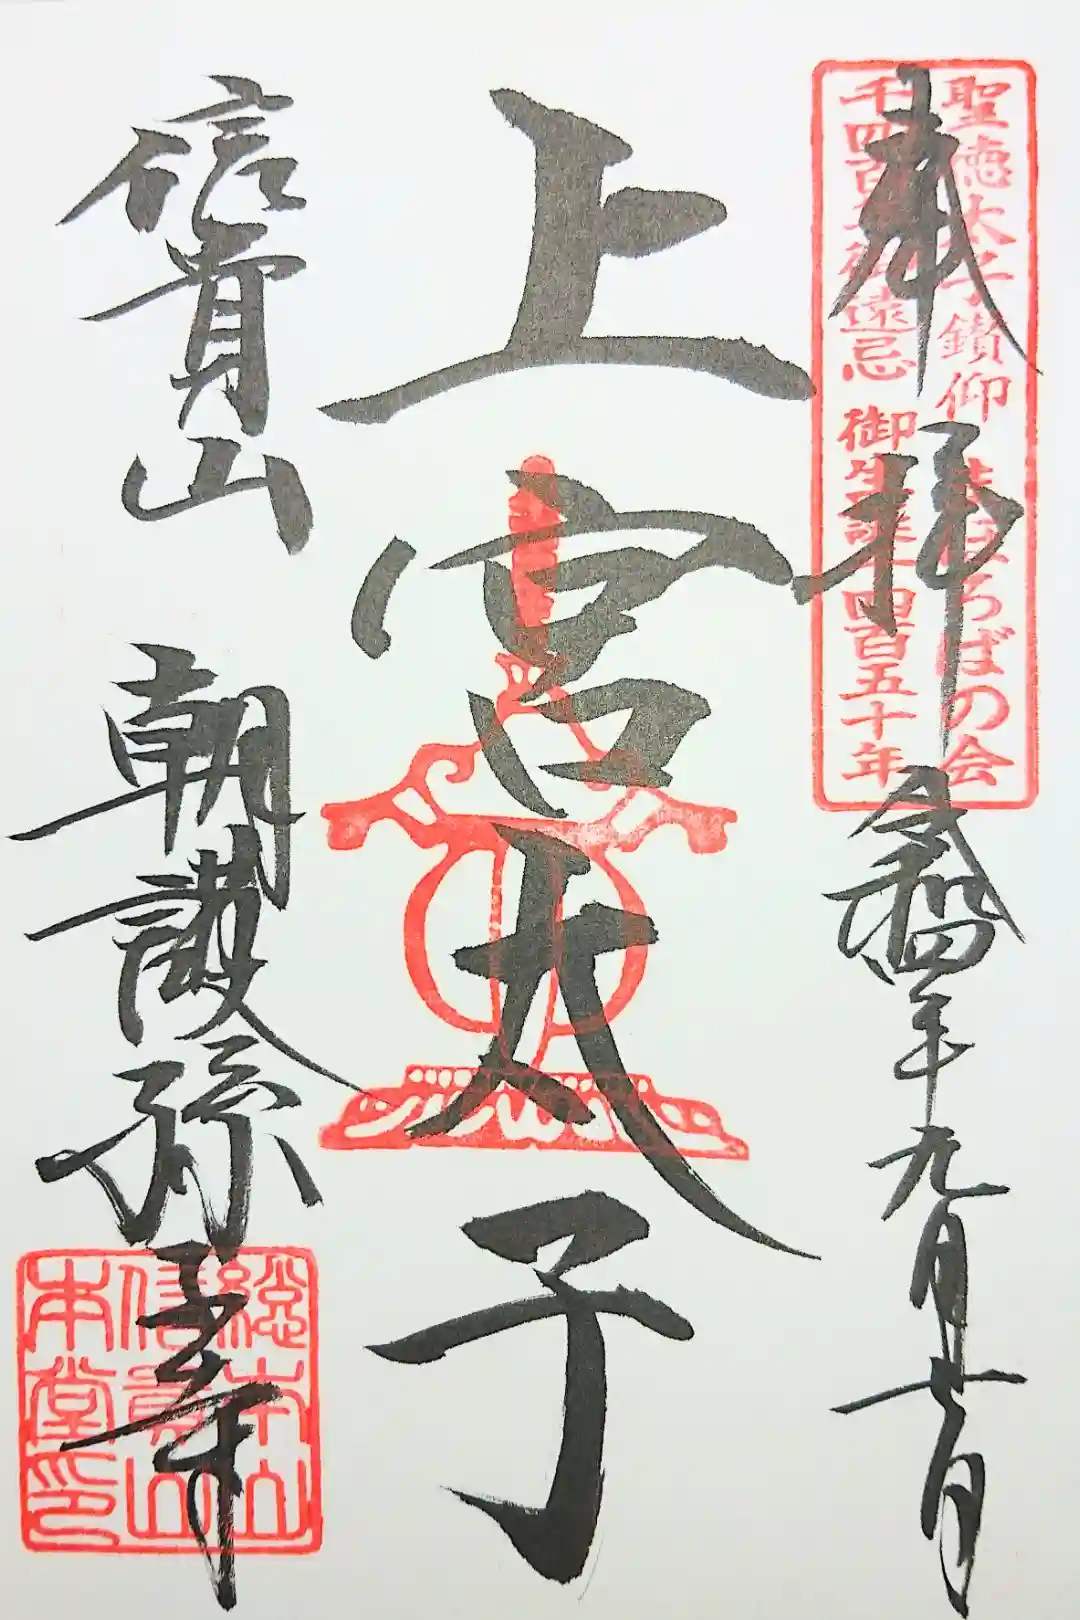 奉拝
令和四年九月七日
聖徳太子鑽仰 まほろばの会
千四百年御遠忌 御生誕千四百五十年
上宮太子
信貴山
朝護孫子寺
総本山
信貴山
本堂印